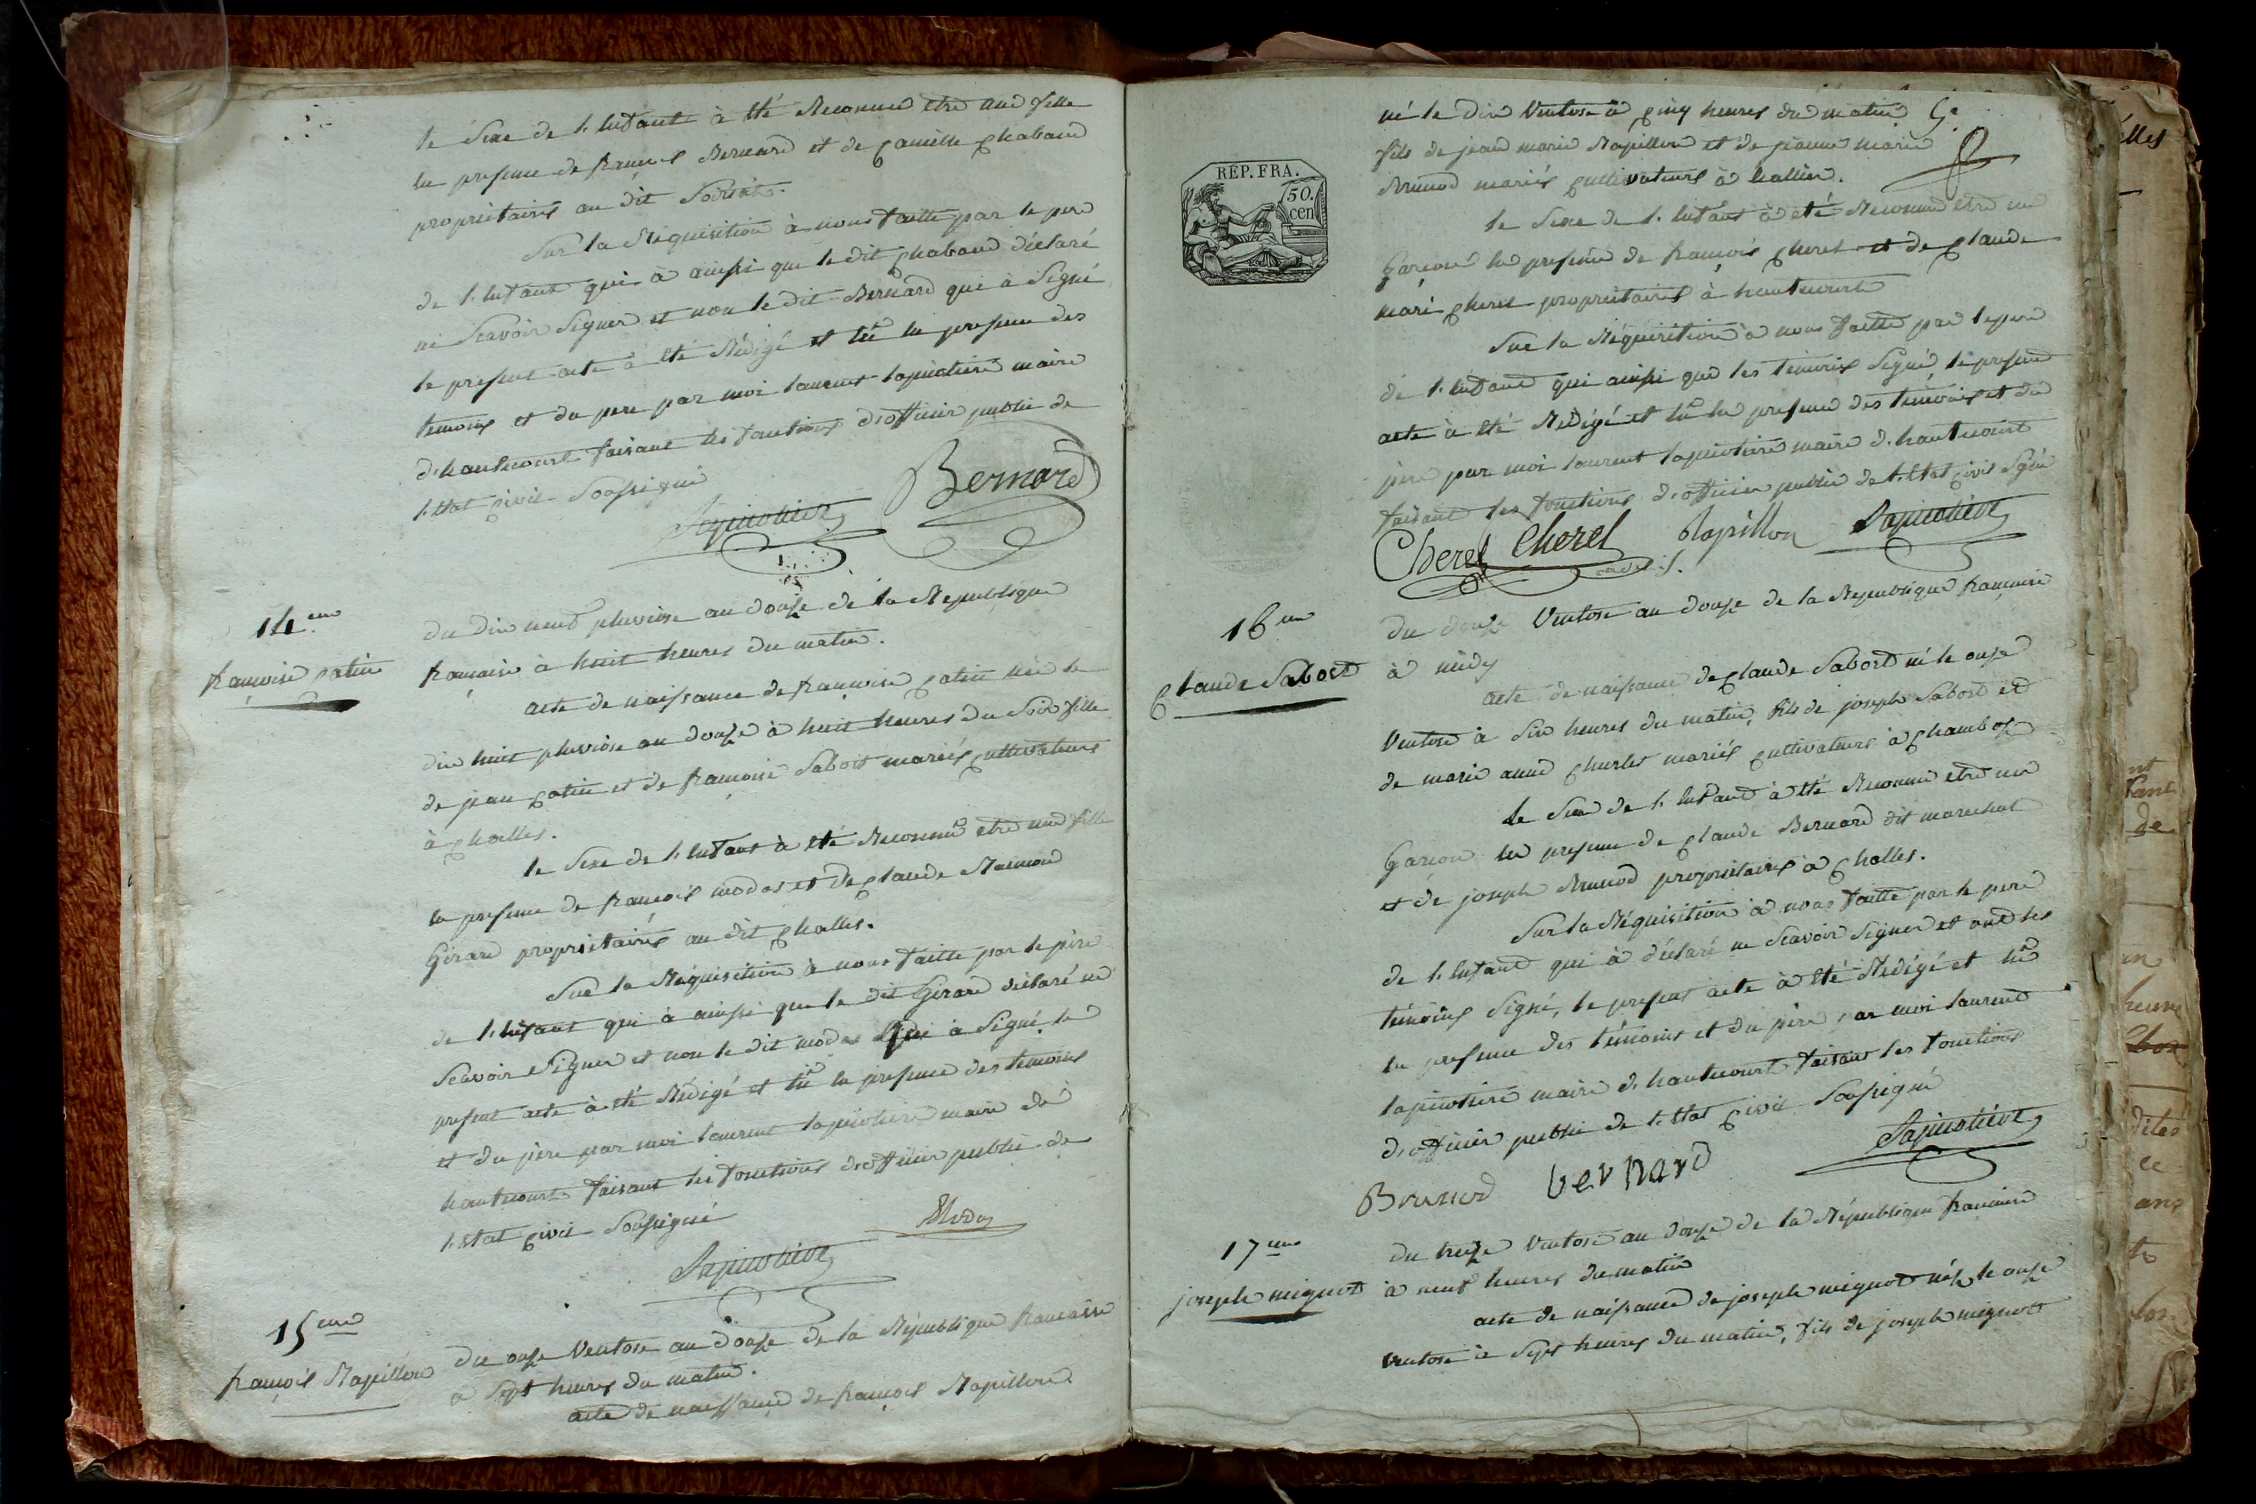 le Sexe de l'Enfant à été Reconnu etre une fille
en presence de françois Bernard et de Camille Chabaud
propriétaires au dit
Sur la Réquisition à nous faitte par le pere
de l'Enfant qui à ainsi que le dit Chabaud déclaré
ne Scavoir Signer et non le dit Bernard qui à Signé
le present acte à été Rédigé et lû en presence des
temoins et du pere par moi laurent lapiérotiére maire
d'hautecourt faisant les fonctions d'officier public de
l'Etat Civil Soussigné
Bernard
14.eme
françoise Catin
du dix neuf pluviose an douze de la Republique
française à huit heures du matin.
acte de naissance de françoise Catin née le
dix huit pluviose an douze à huit heures du Soir fille
de jean Catin et de françoise Sabost mariés Cultivateurs
à Challes.
le Sexe de l'Enfant à été Reconnû etre une fille
en presence de françois modas et de Claude
Girard propriétaires au dit Challes.
Sur la Réquisition à nous faitte par le père
de l'Enfant qui à ainsi que le dit Girard déclaré ne
Scavoir Signer et non le dit modas qui à Signé, le
present acte à été Rédigé et lû en presence des temoins
et du père par moi laurent maire de
hautecourt faisant les fonctions d'officier public de
l'Etat Civil Soussigné
15eme
françois Rapillon
du onze Ventose an douze de la République francaise
a Sept heures du matin.
acte de naissance de françois Rapillon
REP. FRA.
50.
cen
né le dix Ventose à Cinq heures du matin
fils de jean marie Rapillon et de jeanne marie
Brunod mariés Cultivateurs à
le Sexe de l'Enfant à été Reconnu etre un
Garcon en presence de françois Cherel et de Claude
marie Cherel propriétaires à hautecourt
Sur la Réquisition à nous faitte par le pere
de l'Enfant qui ainsi que les témoins Signé, le present
acte à été Rédigé et lû en presence des témoins et du
pere par moi laurent maire d'hautecourt
faisant les fonctions d'officier public de l'Etat Civil Signé
Cherel Cherel Rapillon
16eme
Claude Sabost
du douze Ventose an douze de la Republique française
à midy
acte de naissance de Claude Sabost né le onze
Ventose à Six heures du matin, fils de joseph Sabost et
de marie anne Churlet mariés Cultivateurs à Chambos
le Sexe de l'Enfant à été Reconnu etre un
Garcon en presence de Claude Bernard dit marechal
et de joseph Brunod propriétaires à Challes.
Sur la Réquisition à nous faitte par le pere
de l'Enfant qui à déclaré ne Scavoir Signer et ont les
témoins Signé, le present acte à été Rédigé et lû
en presence des témoins et du père par moi laurent
maire d'hautecourt faisant les fonctions
d'officier public de l'Etat Civil Soussigné
Brunod bernard
17eme
joseph mignot
du treize Ventose an douze de la République francaise
à neuf heures du matin
acte de naissance de joseph mignot né le onze
Ventose à Sept heures du matin, fils de joseph mignot